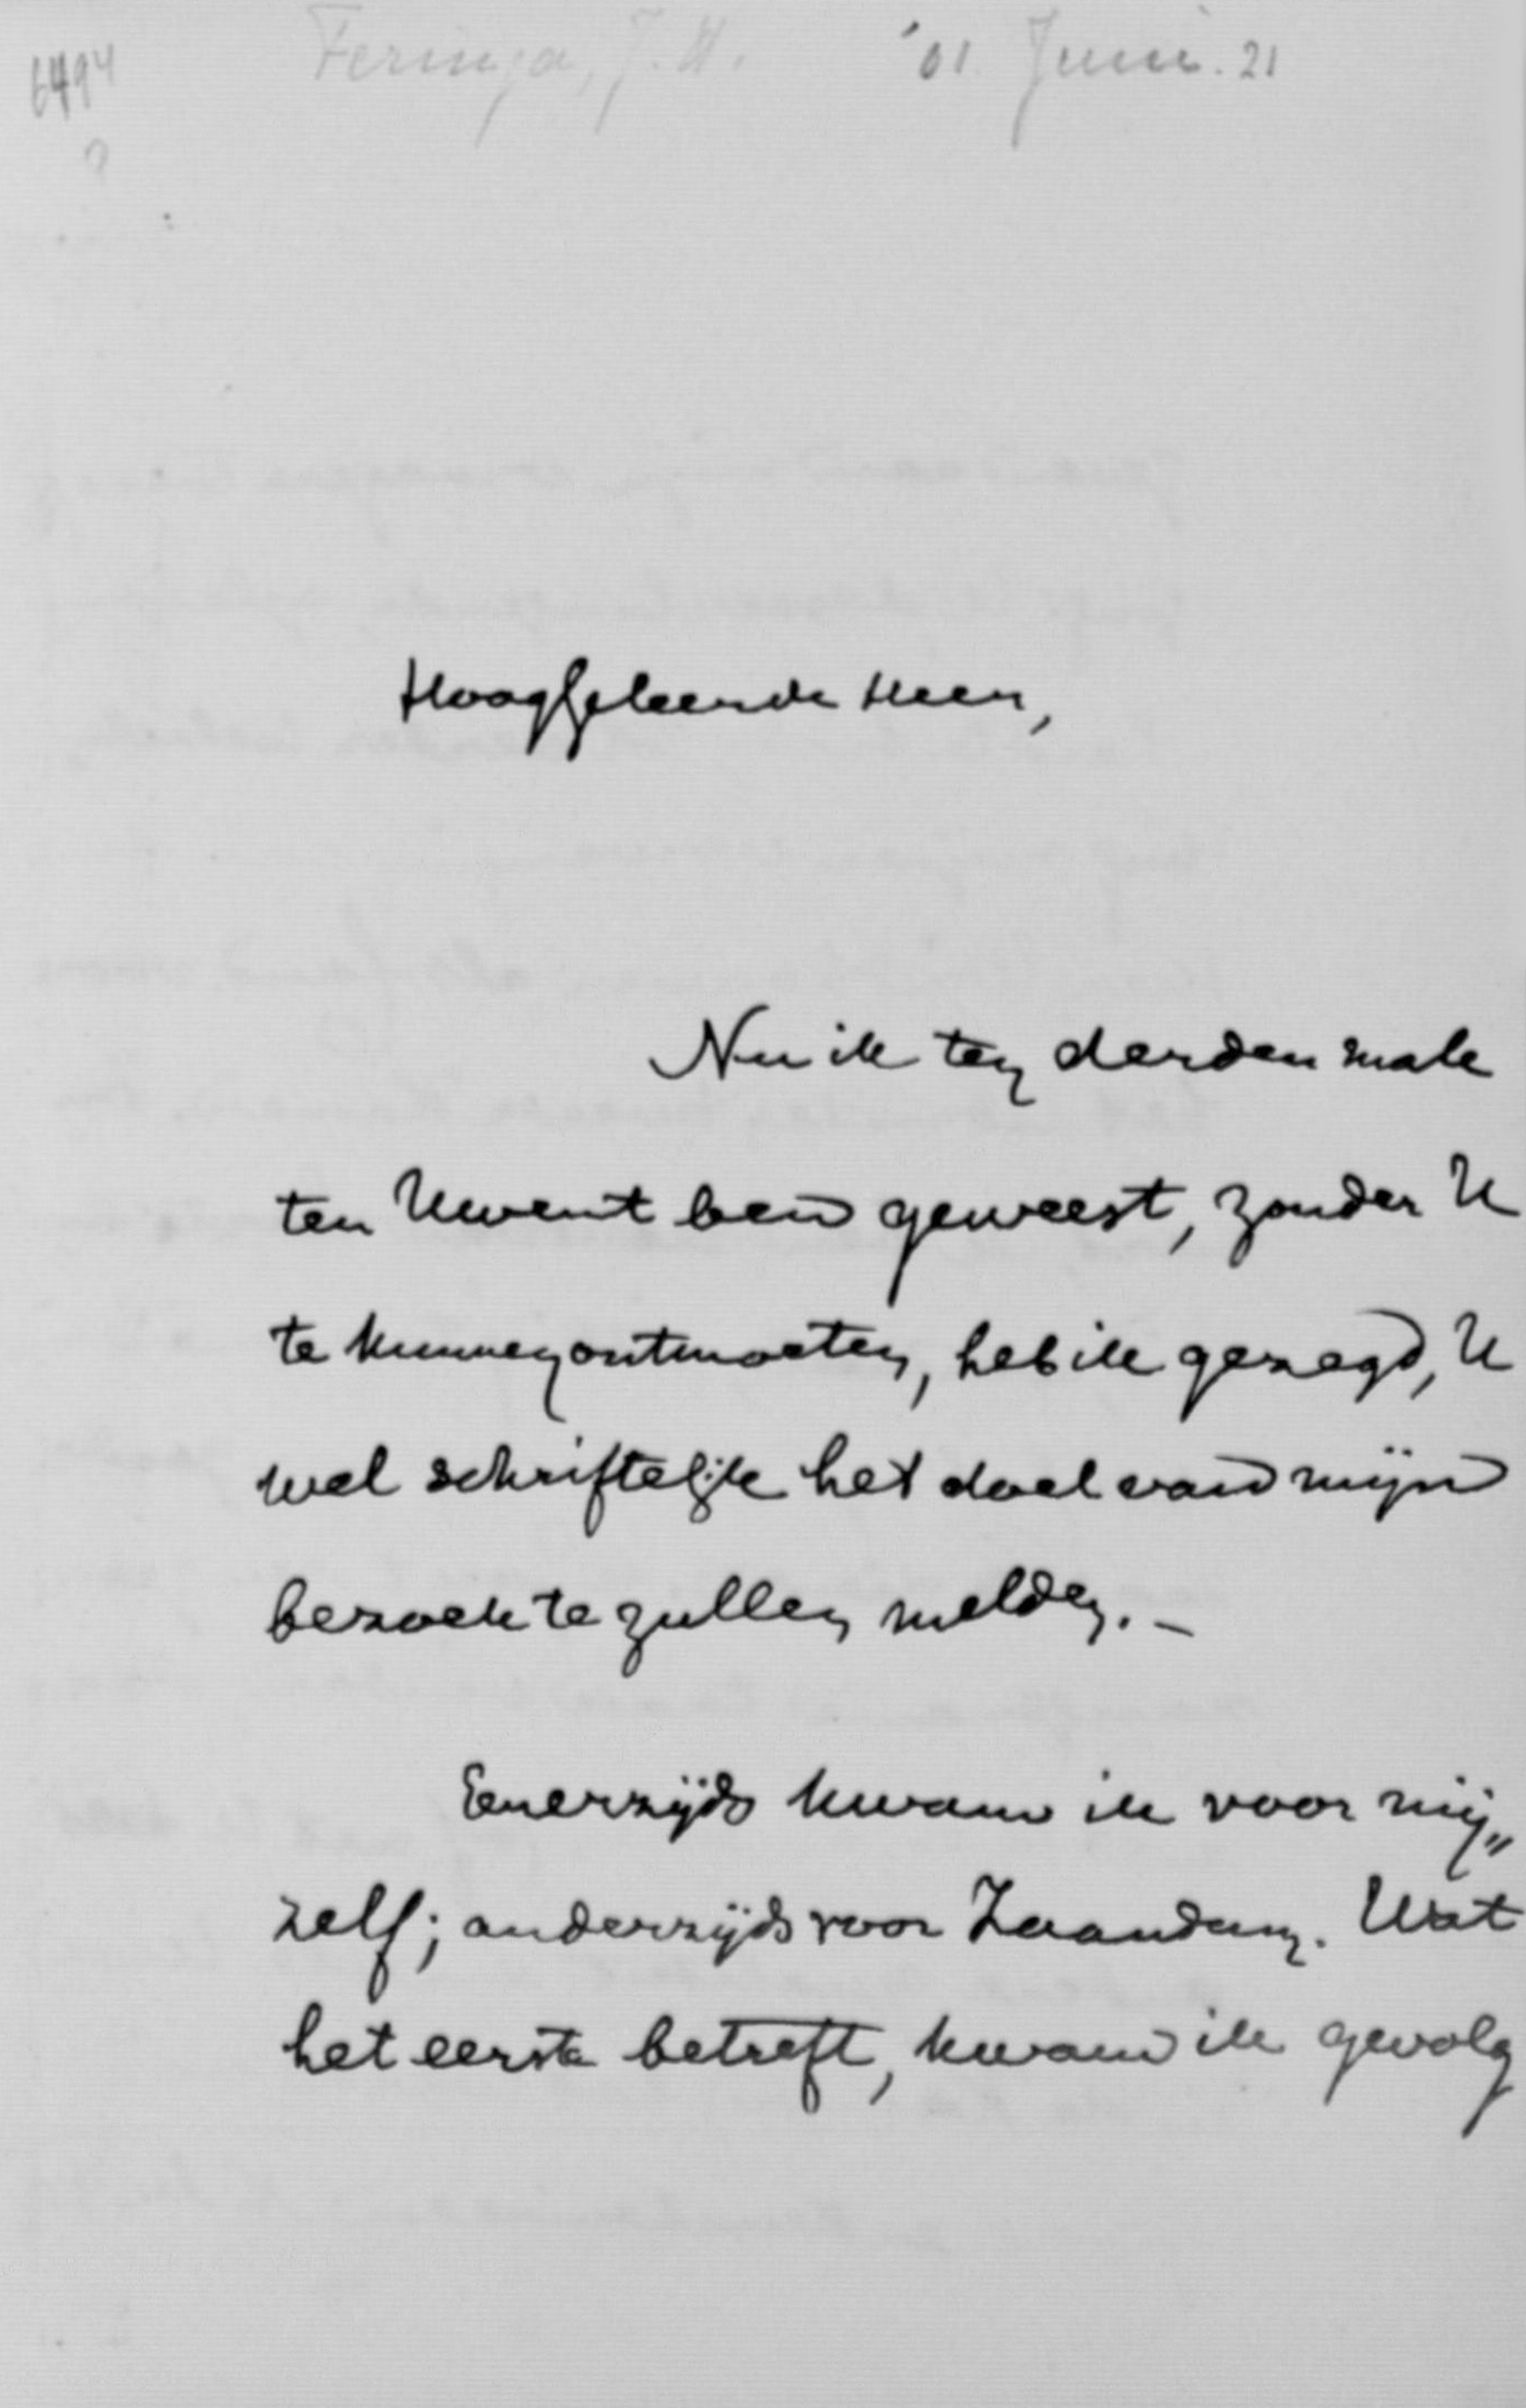 6494 Feringa, J. H. '01. Juni. 21
?
Hooggeleerde Heer,
Nu ik ten derden male
ten Uwent ben geweest, zonder U
te kunnen ontmoeten, heb ik gezegd, U
wel schriftelijk het doel van mijn
bezoek te zullen melden. –
Eenerzijds kwam ik voor mij„
zelf; anderzijds voor Zaandam. Wat
het eerste betreft, kwam ik gevolg